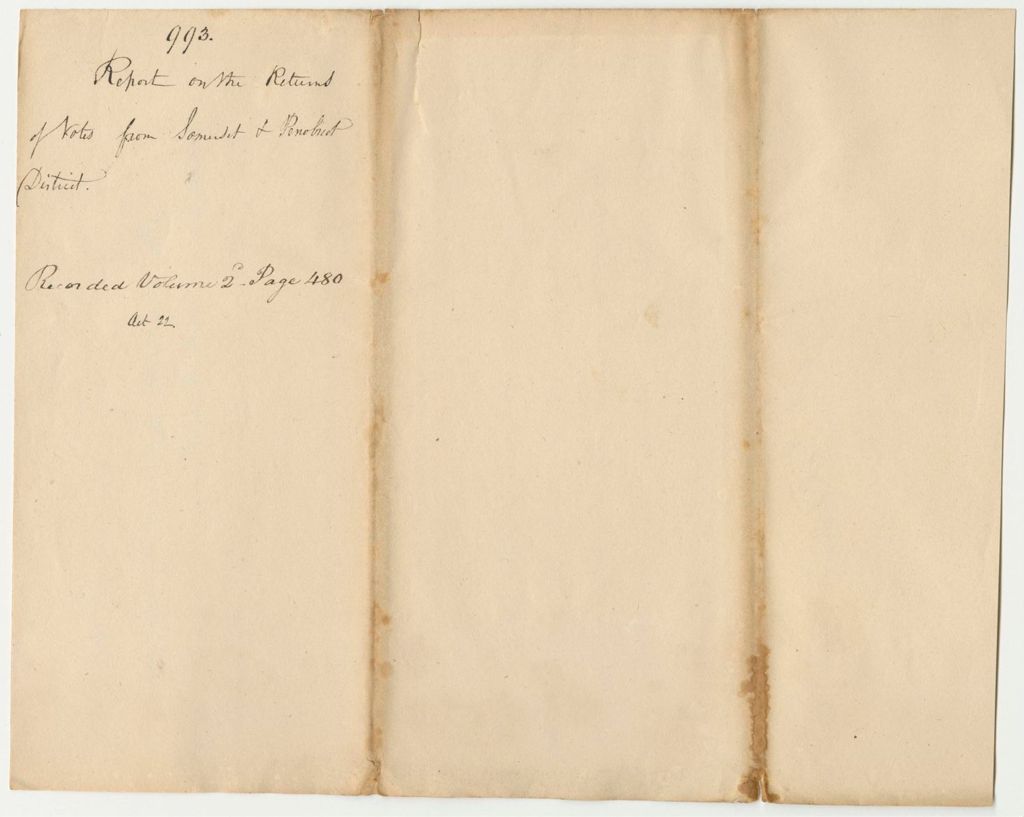 993.
Report on the Returns
of Votes from Somerset & Penobscot
District.
Recorded Volume 2d Page 480
Oct 22